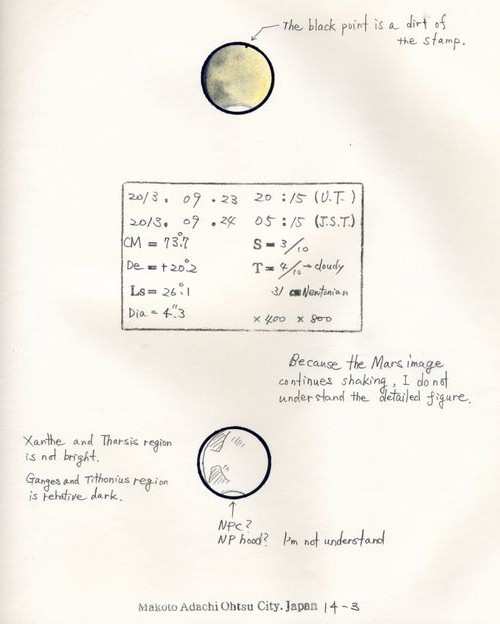 The black point is a dirt of
the stamp.
2013. 09 .23 20 :15 (U.T.)
2013. 09 .24 05 :15 (J.S.T.)
CM = 73.°7 S = 3/10
De = +20.°2 T = 4/10 → cloudy
Ls = 26.°1 31 cm Newtonian
Dia = 4.″3 × 400 × 800
Because the Mars image
continues shaking, I do not
understand the detailed figure.
Xanthe and Tharsis region
is not bright.
Ganges and Tithonius region
is relative dark.
NPC?
NP hood? I'm not understand
Makoto Adachi Ohtsu City. Japan 14-3